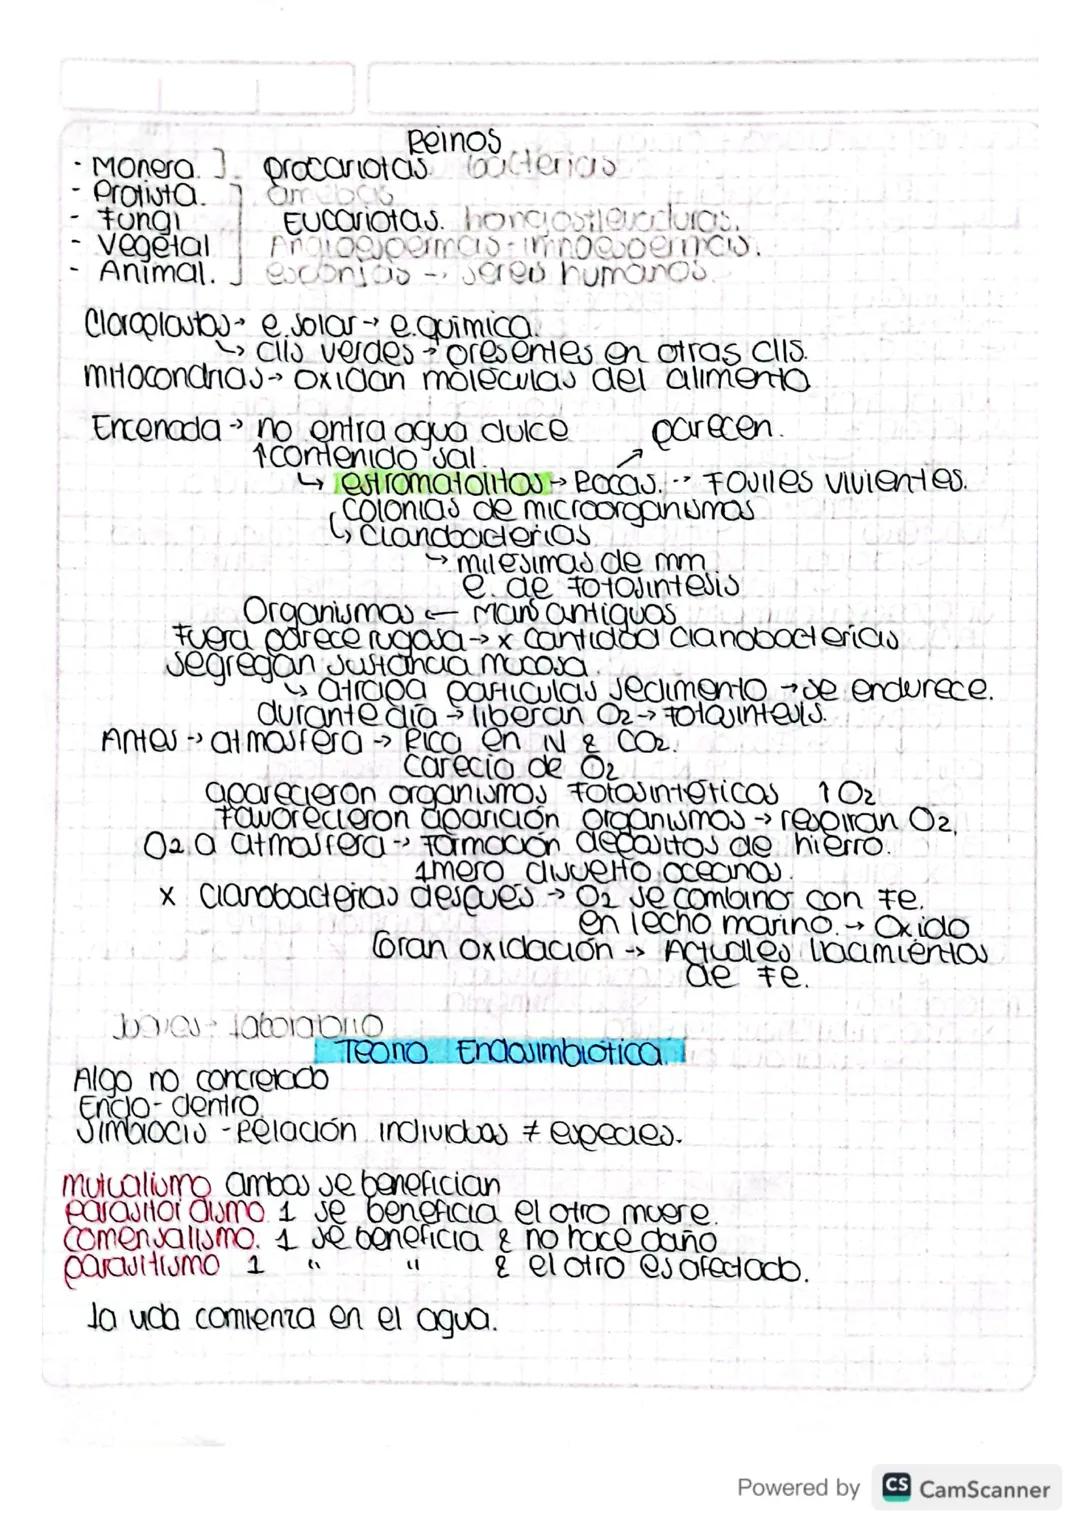 Reinos
- Monera. ]. procariotas. bacterias
- Protista. amebas
- Fungi Eucariotas. hongos, levaduras.
- Vegetal Angioespermas - imnoespermas.
- Animal. esponjas -, seres humanos.
Cloroplastos → e. solar → e. química.
↳ clls verdes → presentes en otras clls.
mitocondrias → oxidan moléculas del alimento
Encenada → no entra agua dulce parecen.
↑ contenido sal.
↳ estromatolitos → Rocas. -- Fosiles vivientes.
Colonias de microorganismos
↳ cianobacterias
↳ milesimas de mm
e. de fotosintesis
Organismos ← mars antiguos
Fuera parece rugosa → x cantidad cianobacterias
segregan sustancia mucosa.
↳ atrapa particulas sedimento → se endurece.
durante dia → liberan O2 → fotosintesis.
Antes → atmosfera → Rica en N & CO2.
carecia de O2
aparecieron organismos fotosintéticos ↑ O2
favorecieron aparición organismos → respiran O2.
O2 a atmosfera → formación depositos de hierro.
1mero disuelto oceanos.
x cianobacterias despues → O2 se combino con Fe.
en lecho marino. → Oxido
Gran oxidación → Actuales yacimientos
de Fe.
Jueves - laboratorio
Teoria Endosimbiotica
Algo no concretado
Endo - dentro
Simbiocis - Relación individuos ≠ especies.
mutualismo ambos se benefician
parasitoidismo 1 se beneficia el otro muere.
comensalismo. 1 se beneficia & no hace daño
parasitismo 1 " " & el otro es afectado.
la vida comienza en el agua.
Powered by CS CamScanner